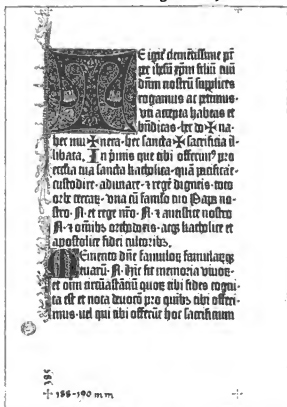 E igit clemētissime pr̄
per ihesū xp̄m filiū tuū
dn̄m nostrū supplices
rogamus ac petimus·
vti accepta habeas et
bn̄dicas· hec do✠na·
hec mu✠nera· hec sancta✠sacrificia il-
libata. In primis que tibi offerim⁹ pro
ecclīa tua sancta katholica· quā pacificare·
custodire· adunare· ⁊ regē digneris· toto
orbe terrar̄· vna cū famlo tuo Papa no-
stro· N· et rege nr̄o· N· ⁊ antistite nostro
N· ⁊ omībꝰ orthodoxis· atqꝫ katholice et
apostolice fidei cultoribꝰ.
Memento dn̄e famuloꝝ famularūqꝫ
tuarū· N· Hic fit memoria viuoꝝ·
et oīm circūastātiū quoꝝ tibi fides cogni-
ta est et nota deuotō pro quibꝰ tibi offeri-
mus· uel qui tibi offerūt hoc sacrificium
385
188-190 mm